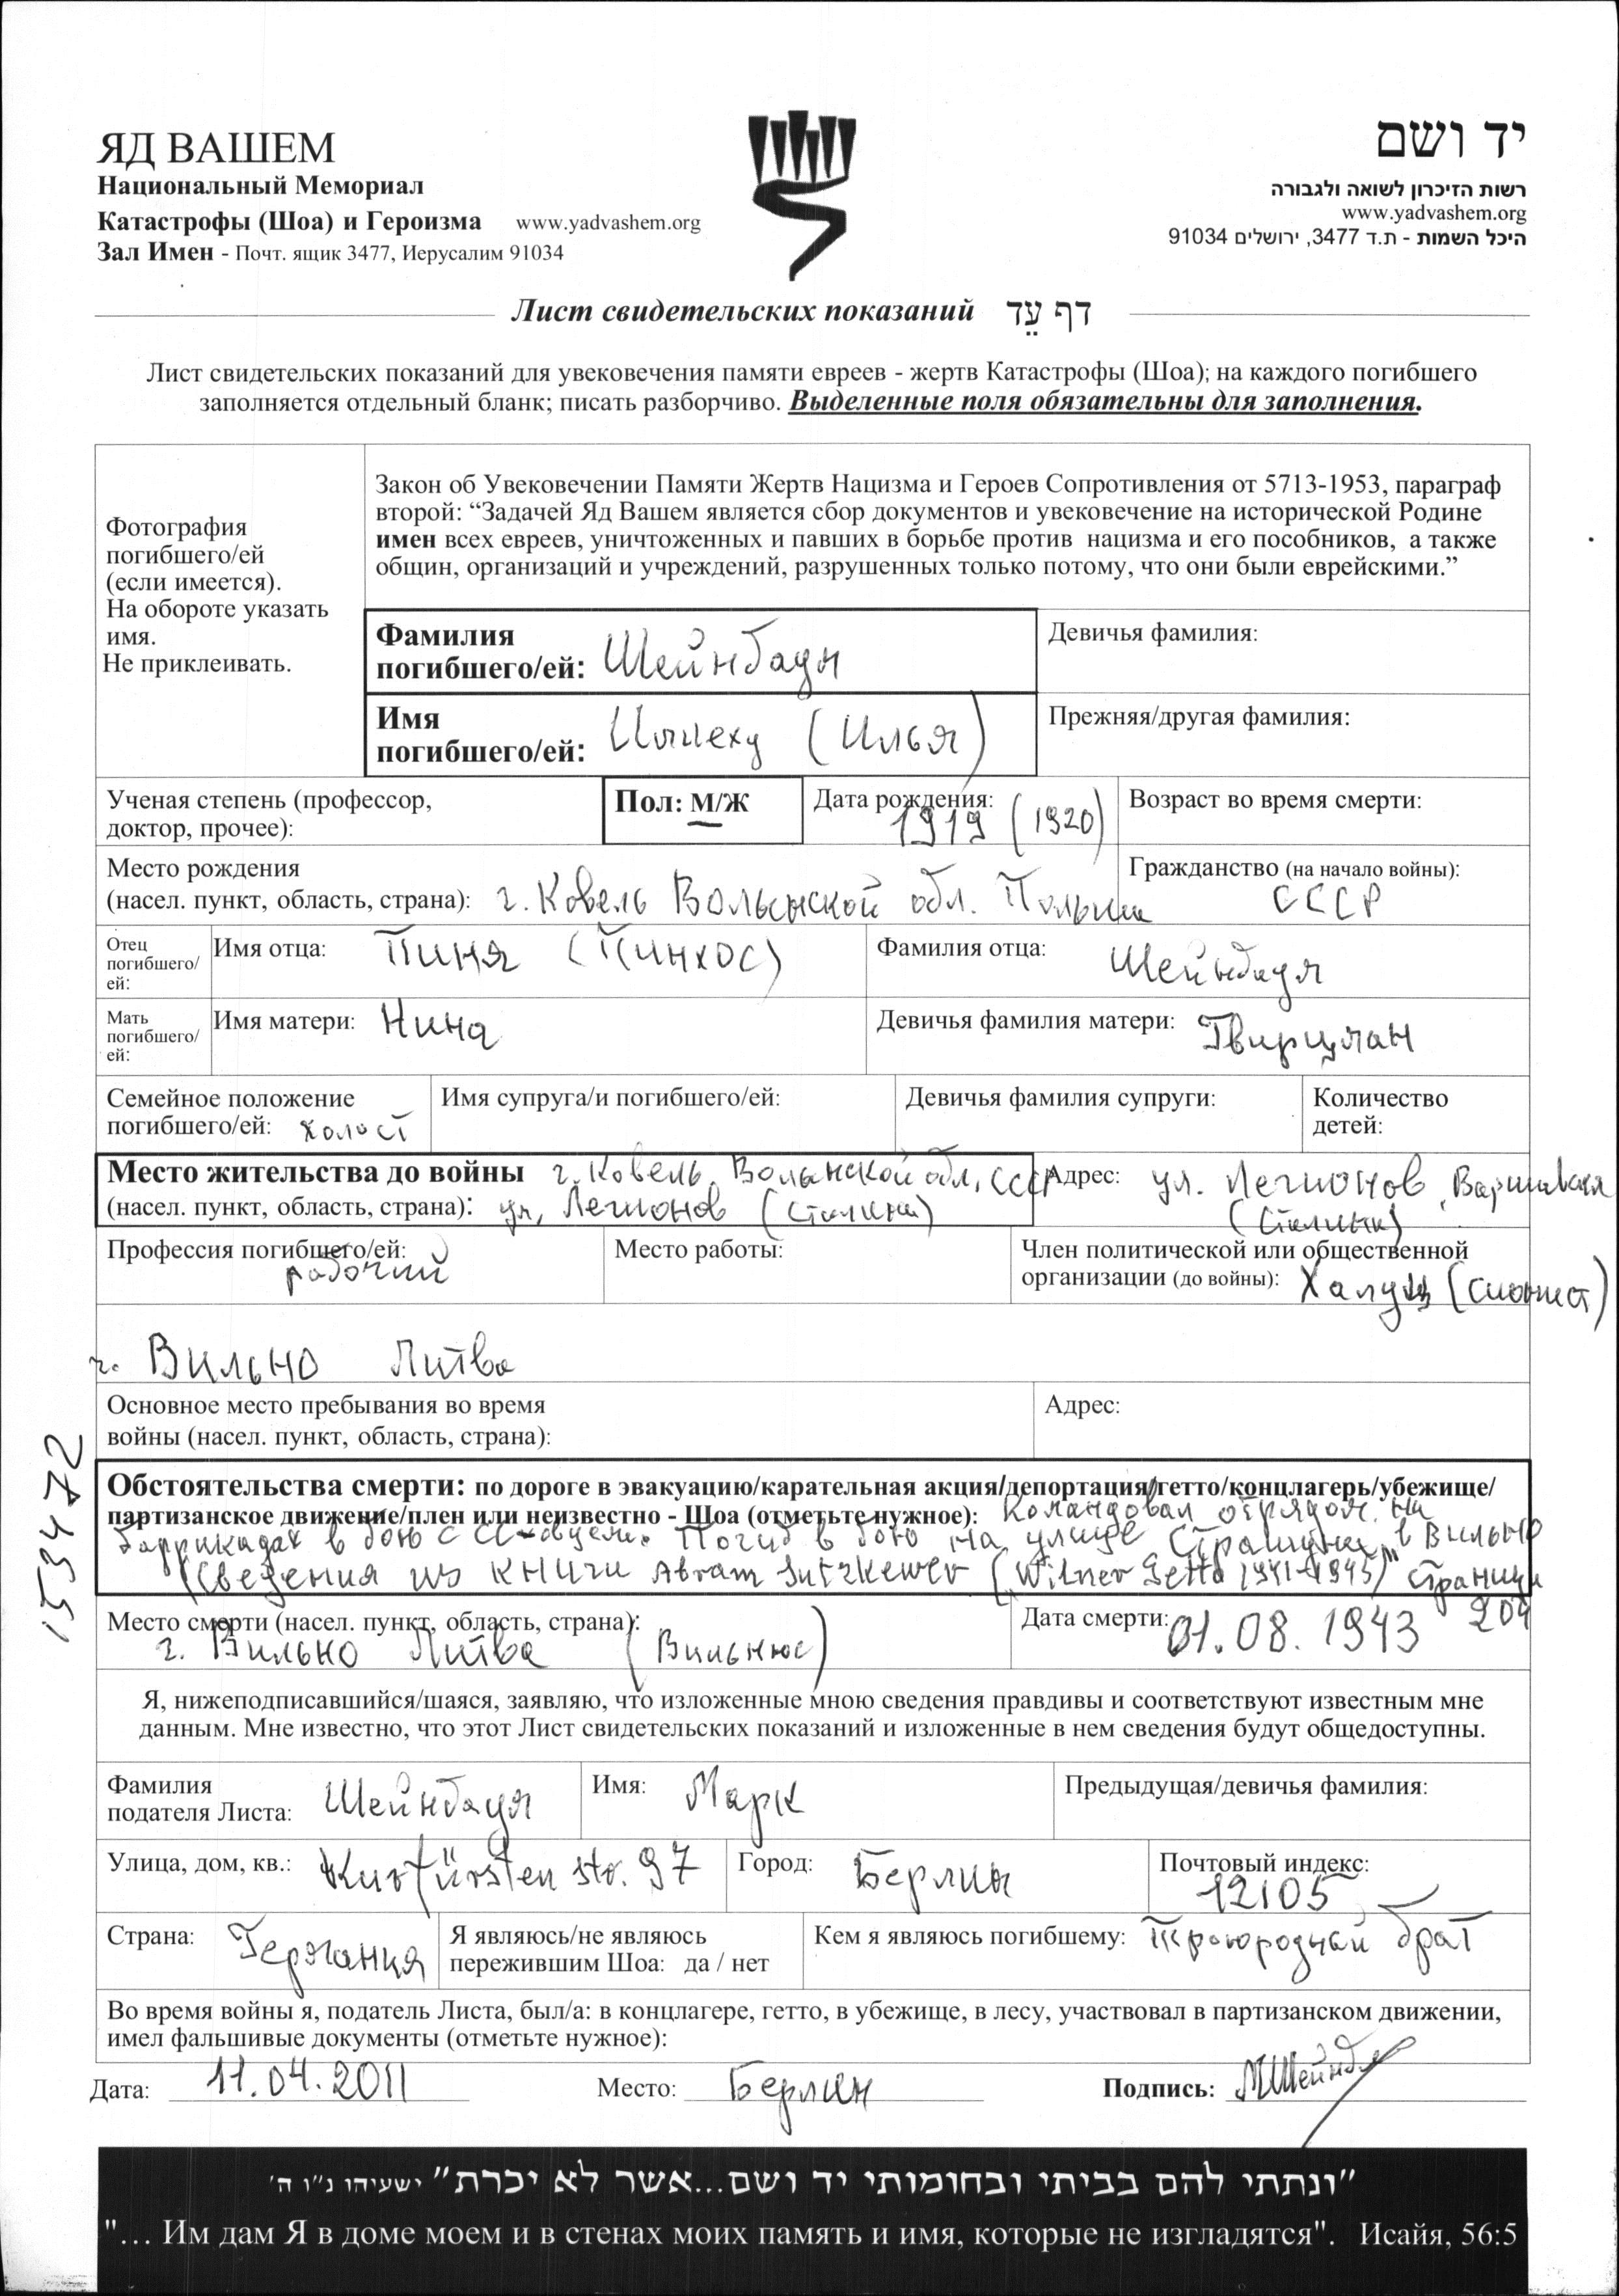 ЯД ВАШЕМ
Национальный Мемориал
Катастрофы (Шоа) и Героизма www.yadvashem.org
Зал Имен - Почт. ящик 3477, Иерусалим 91034
יד ושם
רשות הזיכרון לשואה ולגבורה
www.yadvashem.org
היכל השמות - ת.ד 3477, ירושלים 91034
Лист свидетельских показаний דף עֵד
Лист свидетельских показаний для увековечения памяти евреев - жертв Катастрофы (Шоа); на каждого погибшего
заполняется отдельный бланк; писать разборчиво. Выделенные поля обязательны для заполнения.
Фотография
погибшего/ей
(если имеется).
На обороте указать
имя.
Не приклеивать.
Закон об Увековечении Памяти Жертв Нацизма и Героев Сопротивления от 5713-1953, параграф
второй: “Задачей Яд Вашем является сбор документов и увековечение на исторической Родине
имен всех евреев, уничтоженных и павших в борьбе против нацизма и его пособников, а также
общин, организаций и учреждений, разрушенных только потому, что они были еврейскими.”
Фамилия
погибшего/ей: Шейнбаум
Девичья фамилия:
Имя
погибшего/ей: (Илья)
Прежняя/другая фамилия:
Ученая степень (профессор,
доктор, прочее):
Пол: М/Ж
Дата рождения:
1919 (1920)
Возраст во время смерти:
Место рождения
(насел. пункт, область, страна): г. Ковель Волынской обл. Польша
Гражданство (на начало войны):
СССР
Отец
погибшего/
ей:
Имя отца: Пиня (Пинхос)
Фамилия отца: Шейнбаум
Мать
погибшего/
ей:
Имя матери: Нина
Девичья фамилия матери: Гвирцман
Семейное положение
погибшего/ей: холост
Имя супруга/и погибшего/ей:
Девичья фамилия супруги:
Количество
детей:
Место жительства до войны г. Ковель Волынской обл. СССР
(насел. пункт, область, страна): ул. Легионов (Сталина)
Адрес: ул. Легионов, Варшавская
(Сталина)
Профессия погибшего/ей:
рабочий
Место работы:
Член политической или общественной
организации (до войны): Халуц (сионист)
г. Вильно Литва
Основное место пребывания во время
войны (насел. пункт, область, страна):
Адрес:
Обстоятельства смерти: по дороге в эвакуацию/карательная акция/депортация/гетто/концлагерь/убежище/
партизанское движение/плен или неизвестно - Шоа (отметьте нужное): Командовал отрядом на
баррикадах в бою с СС-овцами. Погиб в бою на улице Страшуна в Вильно
(Сведения из книги Abram Sutzkewer (Wilner Getto 1941-1945)" страница
204
Место смерти (насел. пункт, область, страна):
г. Вильно Литва (Вильнюс)
Дата смерти: 01.08.1943
153472
Я, нижеподписавшийся/шаяся, заявляю, что изложенные мною сведения правдивы и соответствуют известным мне
данным. Мне известно, что этот Лист свидетельских показаний и изложенные в нем сведения будут общедоступны.
Фамилия
подателя Листа: Шейнбаум
Имя: Марк
Предыдущая/девичья фамилия:
Улица, дом, кв.: Kurfürsten str. 97
Город: Берлин
Почтовый индекс:
12105
Страна: Германия
Я являюсь/не являюсь
пережившим Шоа: да / нет
Кем я являюсь погибшему: Троюродный брат
Во время войны я, податель Листа, был/а: в концлагере, гетто, в убежище, в лесу, участвовал в партизанском движении,
имел фальшивые документы (отметьте нужное):
Дата: 11.04.2011 Место: Берлин Подпись:
"ונתתי להם בביתי ובחומותי יד ושם...אשר לא יכרת" ישעיהו נ"ו ה'
"... Им дам Я в доме моем и в стенах моих память и имя, которые не изгладятся". Исайя, 56:5